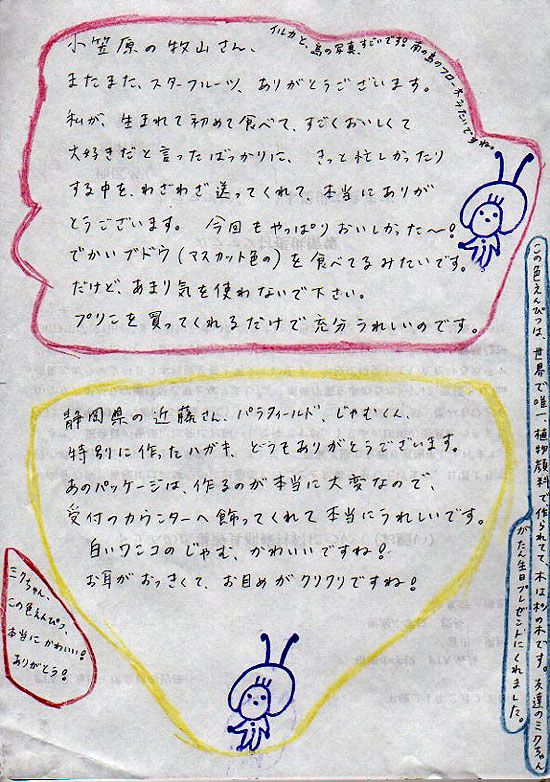 小笠原の牧山さん、
またまた、スターフルーツ、ありがとうございます。
私が、生まれて初めて食べて、すごくおいしくて
大好きだと言ったばっかりに、きっと忙しかったり
する中を、わざわざ送ってくれて、本当にありが
とうございます。 今回もやっぱりおいしかった〜!
でかいブドウ(マスカット色の)を食べてるみたいです。
だけど、あまり気を使わないで下さい。
プリンを買ってくれるだけで充分うれしいのです。
イルカと、島の写真、すごいです!南の島のフローネみたいですね。
静岡県の近藤さん、パラフィールド、じゃむくん、
特別に作ったハガキ、どうもありがとうございます。
あのパッケージは、作るのが本当に大変なので、
受付のカウンターへ飾ってくれて本当にうれしいです。
白いワニコのじゃむ、かわいいですね!
お耳がおっきくて、お目めがクリクリですね!
ミクちゃん、
この色えんぴつ、
本当にかわいい!
ありがとう!
この色えんぴつは、世界で唯一植物顔料で作られてて、木は杉の木です。友達のミクちゃん
がたん生日プレゼントにくれました。